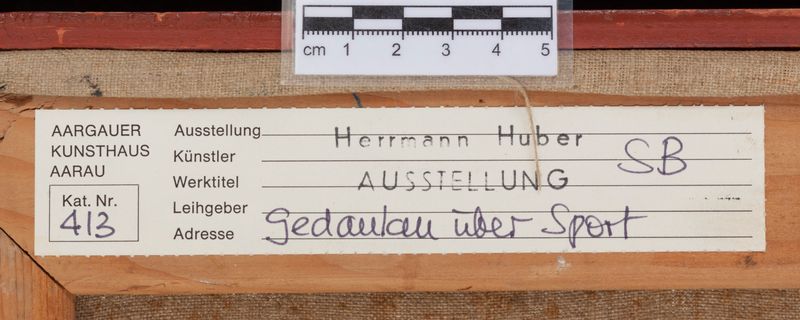 cm 1 2 3 4 5
AARGAUER
KUNSTHAUS
AARAU
Kat. Nr.
413
Ausstellung
Künstler
Werktitel
Leihgeber
Adresse
Herrmann Huber
SB
AUSSTELLUNG
Gedanken über Sport